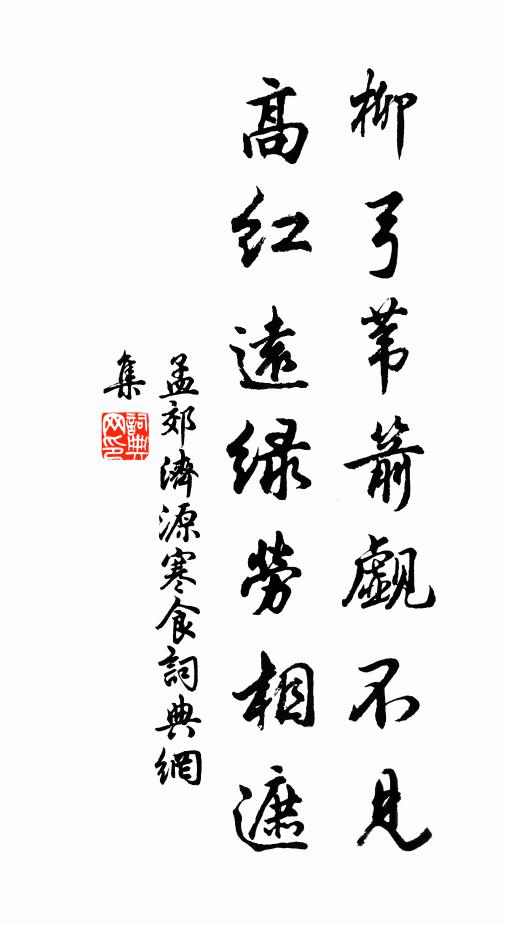 柳弓葦箭覷不見
高紅遠綠勞相遮
孟郊濟源寒食詞典網
集
詞典
网印